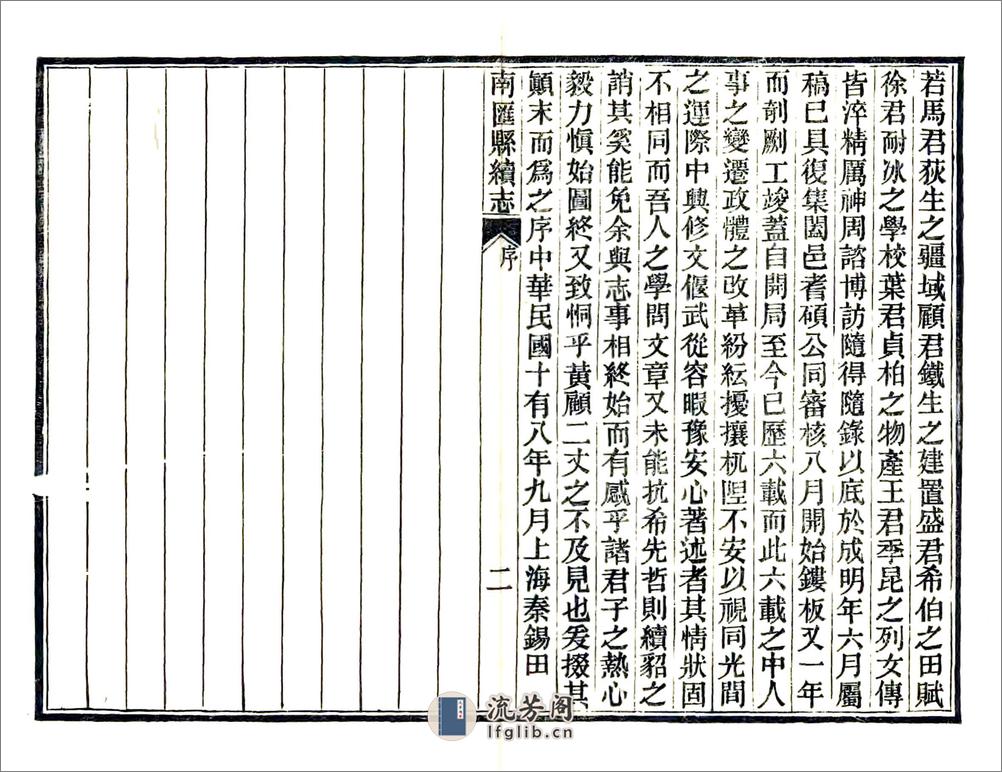 若馬君荻生之疆域顧君鐵生之建置盛君希伯之田賦
徐君耐冰之學校葉君貞柏之物產王君季昆之列女傳
皆淬精厲神周諮博訪隨得隨錄以底於成明年六月屬
稿已具復集闔邑耆碩公同審核八月開始鏤板又一年
而剞劂工竣蓋自開局至今已歷六載而此六載之中人
事之變遷政體之改革紛紜擾攘杌隉不安以視同光間
之運際中興修文偃武從容暇豫安心著述者其情狀固
不相同而吾人之學問文章又未能抗希先哲則續貂之
誚其奚能免余與志事相終始而有感乎諸君子之熱心
毅力愼始圖終又致恫乎黃顧二丈之不及見也爰掇其
顚末而爲之序中華民國十有八年九月上海秦錫田
南匯縣續志 序 二
流芳閣
lfglib.cn